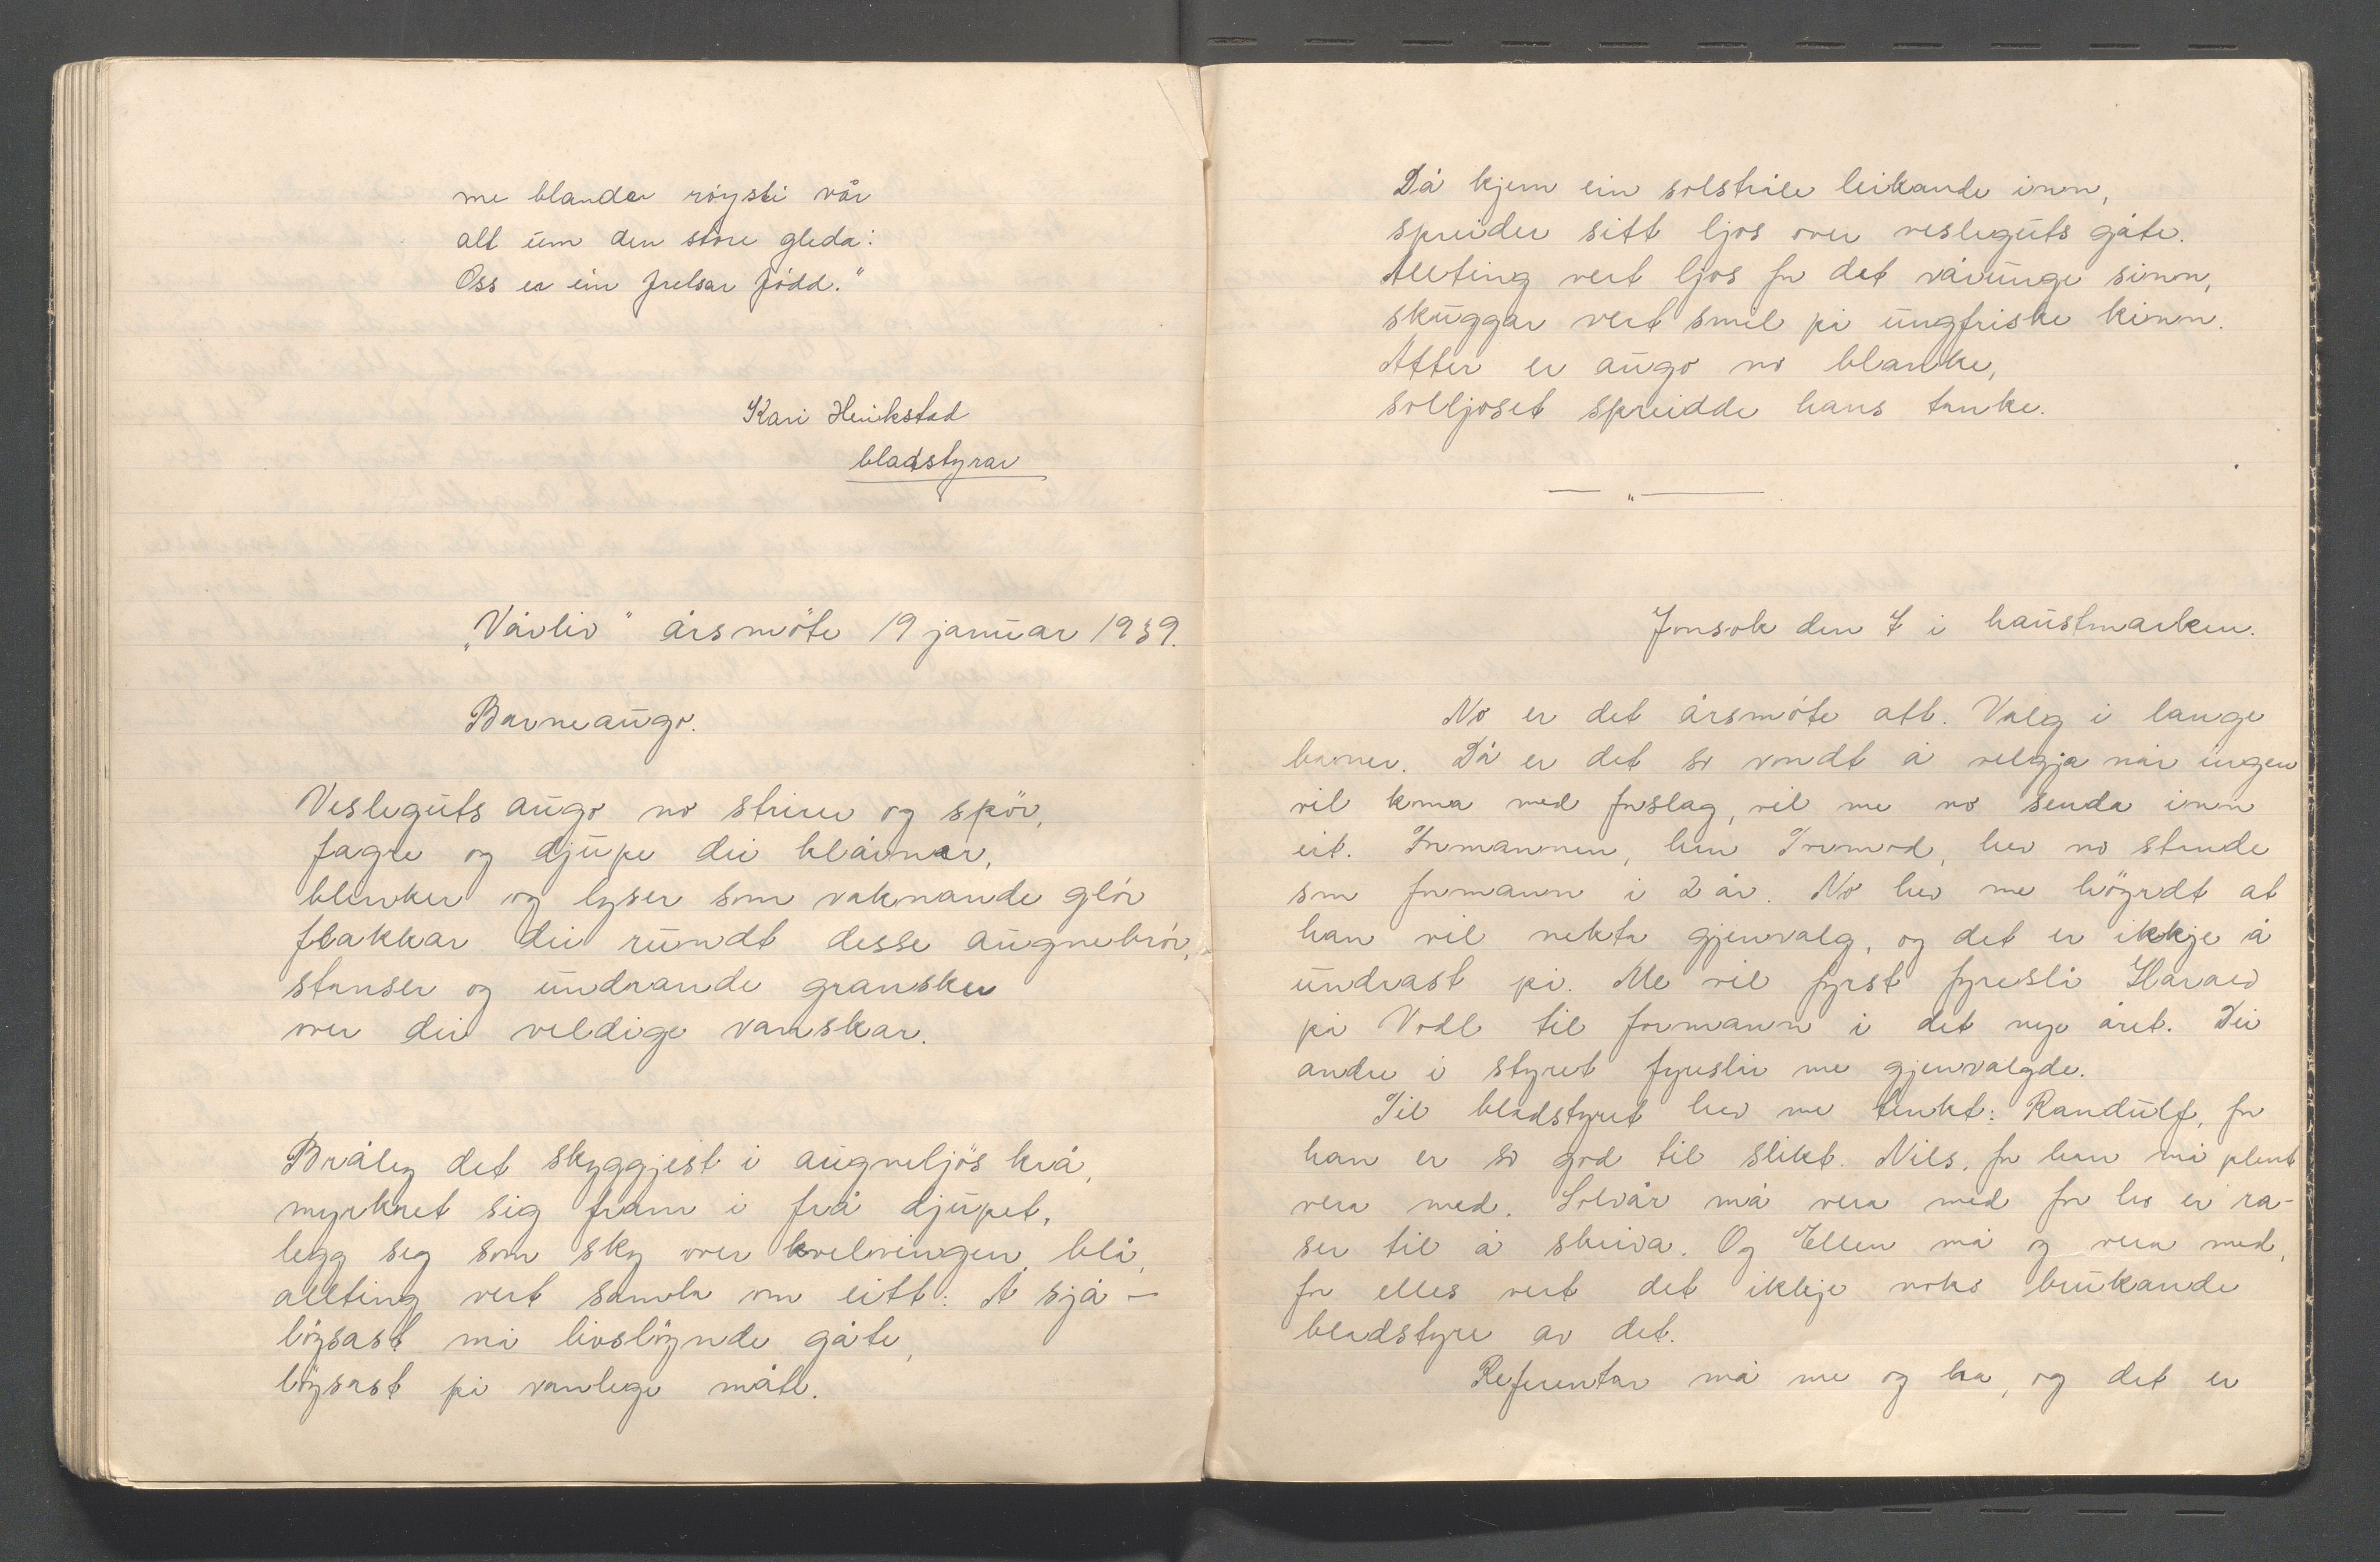 me blandar röysti vår
alt um den store gleda:
Oss er ein frelsar född."
Kari Henrikstad
bladstyrar
"Vårliv" årsmöte 19 januar 1939.
Barneaugo.
Vesleguts augo no stirer og spör,
fagre og djupe dei blåvnar,
blenker og lyser som vaknande glör
flakkar dei rundt desse augnebrör,
stanser og undrande gransker
over dei veldige vanskar.
Bråleg det skyggjest i augneljös krå,
myrkret sig fram i frå djupet,
legg seg som sky over kvelvingen blå,
allting vert samla om eitt: Å sjå –
löysast må livslöynde gåte,
löysast på vanlege måte.
Då kjem ein solstråle leikande inn,
spreider sitt ljos over vesleguts gåte.
Allting vert ljos for det vårunge sinn,
skuggar vert smil på ungfriske kinn.
Atter er augo no blanke,
solljoset spreidde hans tanke.
— " —
Jonsok den 7 i haustmarken.
No er det årsmöte att. Valg i lange
baner. Då er det so vondt å velgja når ingen
vil koma med forslag, vil me no senda inn
eit. Formannen, hin Tormod, hev no stande
som formann i 2 år. No hev me höyrdt at
han vil nekta gjenvalg, og det er ikkje å
undrast på. Me vil fyrst fyreslå Harald
på Vodl til formann i det nye året. Dei
andre i styret fyreslår me gjenvalgde.
Til bladstyret hev me tenkt: Randulf, for
han er so god til slikt. Nils, for han må plent
vera med. Solvår må vera med for ho er ra-
ser til å skriva. Og Ellen må og vera med,
for elles vert det ikkje noko brukande
bladstyre av det.
Referentar må me og ha, og det er